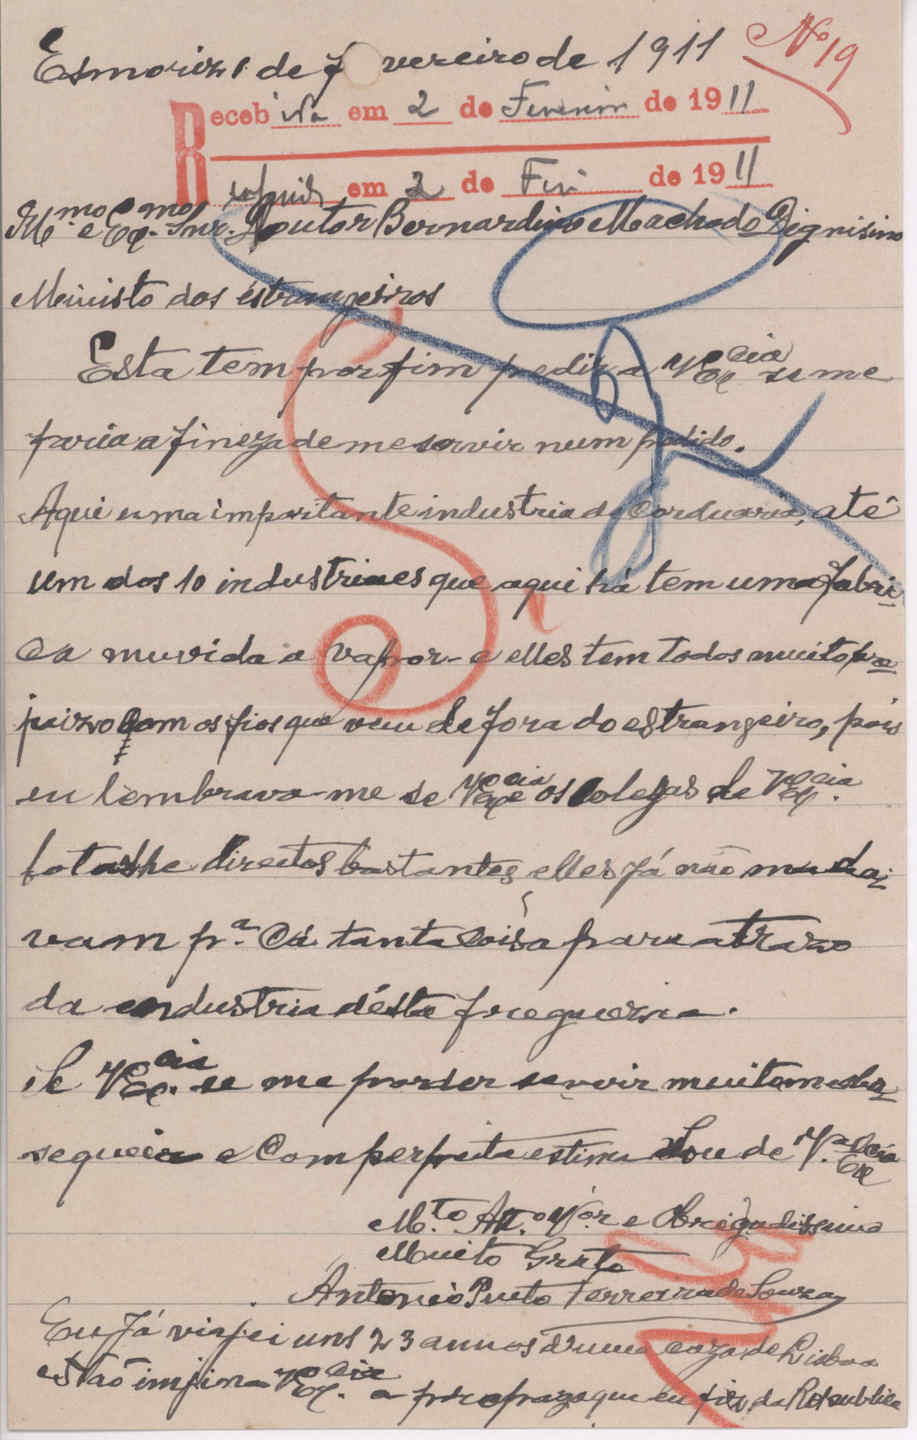 Esmoriz 1 de f vereiro de 1911
Nº 19
Recebida em 2 de Fevereiro de 1911
em 2 de Fev de 1911
Illmo e Exmo. Snr. Doutor Bernardino Machado Dignisimo
Ministo dos éstrangeiros
Esta tem por fim pedir a VExcia se me
faria a fineza de me servir num pedido.
Aqui uma importante industria de Corduaria, até
um dos 10 industriaes que aqui há tem uma fabri-
ca muvida a vapor e elles tem todos muito pre
juizo com os fios que vem de fora do estrangeiro, pois
eu lembrava-me se VExcia e os colegas de VExcia.
botasse direitos bastantes elles já não manda-
vam pª. Cá tanta coisa para atrazo
da industria désta freguezia.
Se VExcia. se me poder servir muito me ob-
sequeia e Com perfeita estima Sou de Vª Excia
M.to Att.º V.or e Obrigadissimo
Muito Grato
Antonio Pinto Ferreira de Souza
Eu Já viajei uns 23 annos duma caza de Lisboa
VExcia. a que eu fiz da Republica